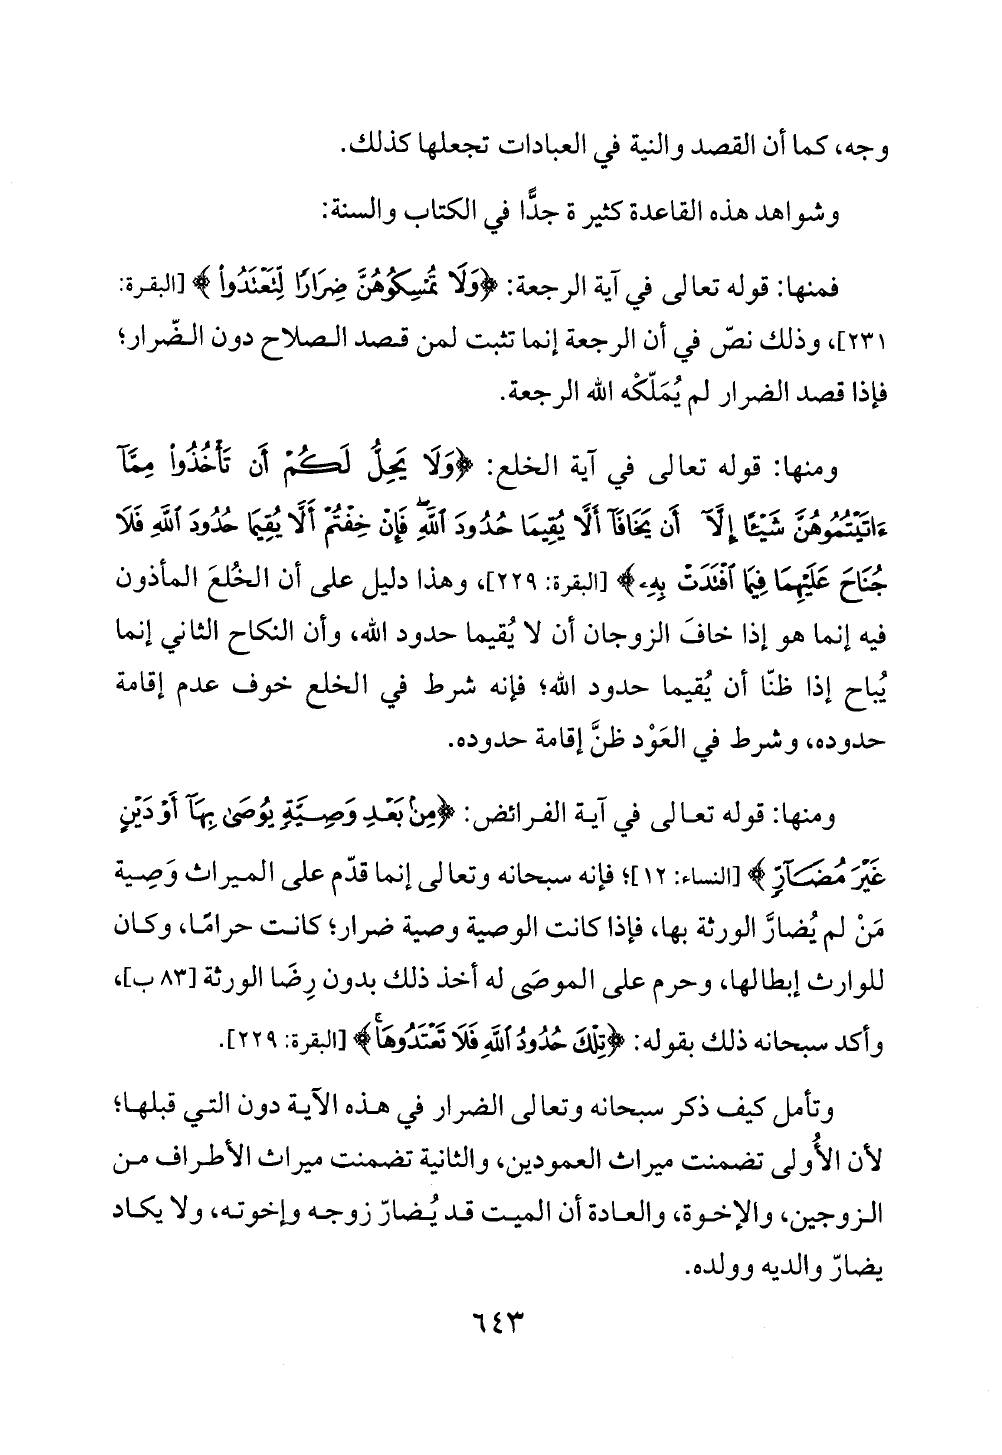 وجه، كما أن القصد والنية في العبادات تجعلها كذلك.
وشواهد هذه القاعدة كثيرة جدًّا في الكتاب والسنة:
فمنها: قوله تعالى في آية الرجعة: ﴿وَلَا تُمْسِكُوهُنَّ ضِرَارًا لِّتَعْتَدُوا۟﴾ [البقرة:
٢٣١]، وذلك نصّ في أن الرجعة إنما تثبت لمن قصد الصلاح دون الضّرار؛
فإذا قصد الضرار لم يُمَلّكْه الله الرجعة.
ومنها: قوله تعالى في آية الخلع: ﴿وَلَا يَحِلُّ لَكُمْ أَن تَأْخُذُوا۟ مِمَّآ
ءَاتَيْتُمُوهُنَّ شَيْـًٔا إِلَّآ أَن يَخَافَآ أَلَّا يُقِيمَا حُدُودَ ٱللَّهِ ۖ فَإِنْ خِفْتُمْ أَلَّا يُقِيمَا حُدُودَ ٱللَّهِ فَلَا
جُنَاحَ عَلَيْهِمَا فِيمَا ٱفْتَدَتْ بِهِۦ﴾ [البقرة: ٢٢٩]، وهذا دليل على أن الخُلعَ المأذون
فيه إنما هو إذا خافَ الزوجان أن لا يُقيما حدود الله، وأن النكاح الثاني إنما
يُباح إذا ظنّا أن يُقيما حدود الله؛ فإنه شرط في الخلع خوف عدم إقامة
حدوده، وشرط في العَوْد ظنَّ إقامة حدوده.
ومنها: قوله تعالى في آية الفرائض: ﴿مِنۢ بَعْدِ وَصِيَّةٍ يُوصَىٰ بِهَآ أَوْ دَيْنٍ
غَيْرَ مُضَآرٍّ﴾ [النساء: ١٢]؛ فإنه سبحانه وتعالى إنما قدّم على الميراث وَصِية
مَنْ لم يُضارَّ الورثة بها، فإذا كانت الوصية وصية ضرار؛ كانت حرامًا، وكان
للوارث إبطالها، وحرم على الموصَى له أخذ ذلك بدون رِضَا الورثة [٨٣ ب]،
وأكد سبحانه ذلك بقوله: ﴿تِلْكَ حُدُودُ ٱللَّهِ فَلَا تَعْتَدُوهَا ۚ﴾ [البقرة: ٢٢٩].
وتأمل كيف ذكر سبحانه وتعالى الضرار في هذه الآية دون التي قبلها؛
لأن الأُولى تضمنت ميراث العمودين، والثانية تضمنت ميراث الأطراف من
الزوجين، والإخوة، والعادة أن الميت قد يُضارّ زوجه وإخوته، ولا يكاد
يضارّ والديه وولده.
٦٤٣